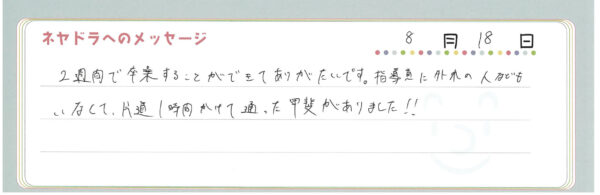 ネヤドラへのメッセージ
8月18日
2週間で卒業することができてありがたいです。指導員に外れの人なども
いなくて、片道1時間かけて通った甲斐がありました!!